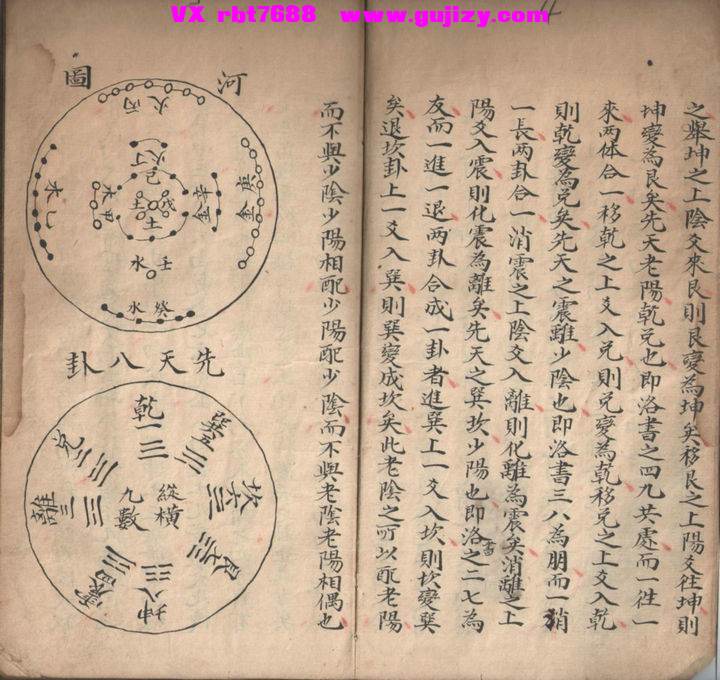 VX rbt7688 www.gujizy.com
之舉坤之上陰爻來艮則艮變為坤矣移艮之上陽爻往坤則
坤變為艮矣先天老陽乾兌也即洛書之四九共處而一往一
來两体合一移乾之上爻入兌則兌變為乾移兌之上爻入乾
則乾變為兌矣先天之震離少陰也即洛書三八為朋而一消
一長两卦合一消震之上陰爻入離則化離為震矣消離之上
陽爻入震則化震為離矣先天之巽坎少陽也即洛書之二七為
友而一進一退两卦合成一卦者進巽上一爻入坎則坎變巽
矣退坎卦上一爻入巽則巽變成坎矣此老陰之所以配老陽
而不與少陰少陽相配少陽配少陰而不與老陰老陽相偶也
河圖
火丙
火丁
己
戊
土
土
庚金
辛金
木甲
木乙
水壬
水癸
先天八卦
乾一
兌二
離三
震四
巽五
坎六
艮七
坤八
縱橫
九數